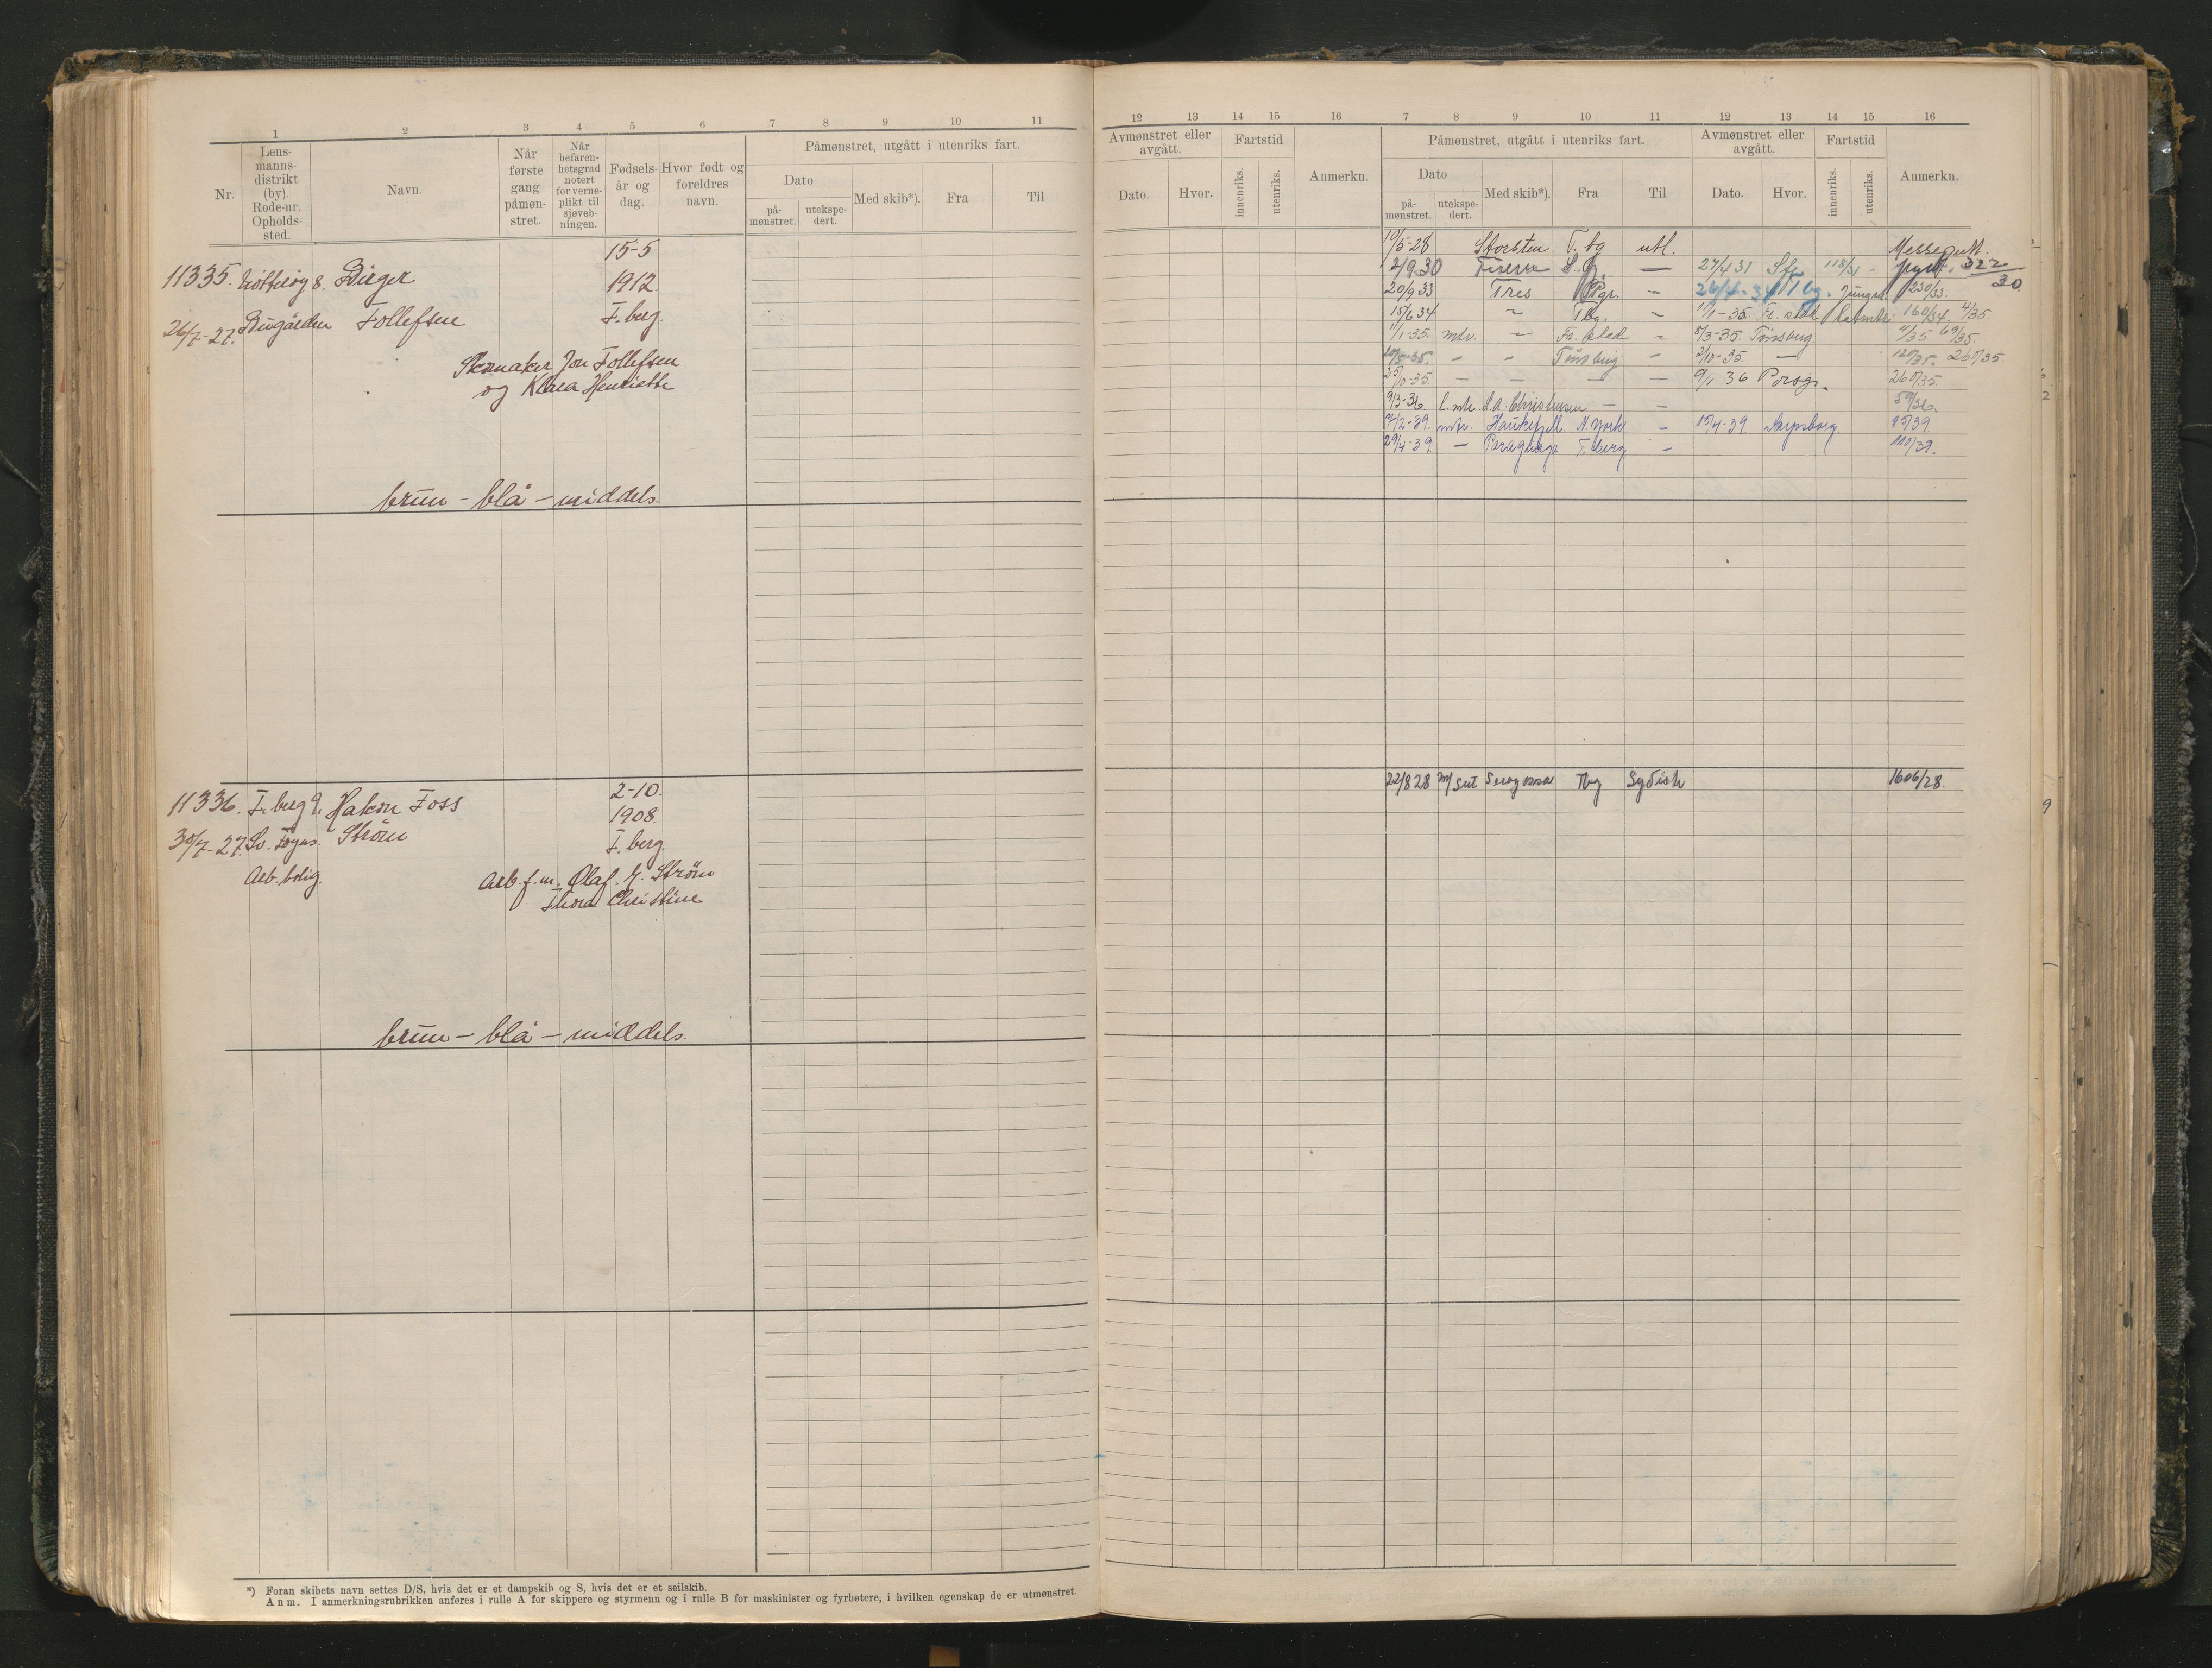 1 2 3 4 5 6 7 8 9 10 11
Nr.
Lens-
manns-
distrikt
(by).
Rode-nr.
Opholds-
sted.
Navn.
Når
første
gang
påmøn-
stret.
Når
befaren-
hetsgrad
notert
for verne-
plikt til
sjøveb-
ningen.
Fødsels-
år og
dag.
Hvor født og
foreldres
navn.
Påmønstret, utgått i utenriks fart.
Dato
på-
mønstret.
utekspe-
dert.
Med skib*).
Fra
Til
15-5
11335. Nötterøy 8. Birger 1912.
26/7-27. Tollefsen T.berg.
Skomaker Jon Tollefsen
og Klara Henriette
brun - blå - middels.
11336. T.berg 9. Hakon Foss 2-10.
1908.
30/7-27. Sv. Foyns. Strøm T. berg.
Arb.bolig. Arb.f.m. Olaf. M. Strøm
Thora Christine
brun - blå - middels.
*) Foran skibets navn settes D/S, hvis det er et dampskib og S, hvis det er et seilskib.
Anm. I anmerkningsrubrikken anføres i rulle A for skippere og styrmenn og i rulle B for maskinister og fyrbøtere, i hvilken egenskap de er utmønstret.
12 13 14 15 16 7 8 9 10 11 12 13 14 15 16
Avmønstret eller
avgått.
Dato. Hvor.
Fartstid
innenriks.
utenriks.
Anmerkn.
Påmønstret, utgått i utenriks fart.
Dato
på-
mønstret.
utekspe-
dert.
Med skib*). Fra Til
Avmønstret eller
avgått.
Dato. Hvor.
Fartstid
innenriks.
utenriks.
Anmerkn.
10/5-28 Storsten T.bg utl. Messegutt.
2/9.30 — 27/4 31 118/31 - 322/30
20/9 33 Tres Pgr. - 26/4-34 Tbg. Jungm. 230/33.
15/6 34 ~ Tbg. ~ 11/1-35. Fr.stad 160/34. 4/35.
11/1-35. mtr. ~ Fr.stad ~ 8/3-35. Tönsberg 4/35 69/35.
- - Tönsberg - 2/10-35 — 120/35. 260/35.
25/10-35. — — — — 9/1 36 Porsgr. 260/35.
9/3-36. l.mtr. S.A. Christensen — — 59/36.
7/2-39. mtr. Haukefjell N.York - 15/4-39. Sarpsborg. 95/39.
29/4-39. — T.berg - 110/39.
22/8 28 m/sut Saragossa Tbg Sydish 1606/28.